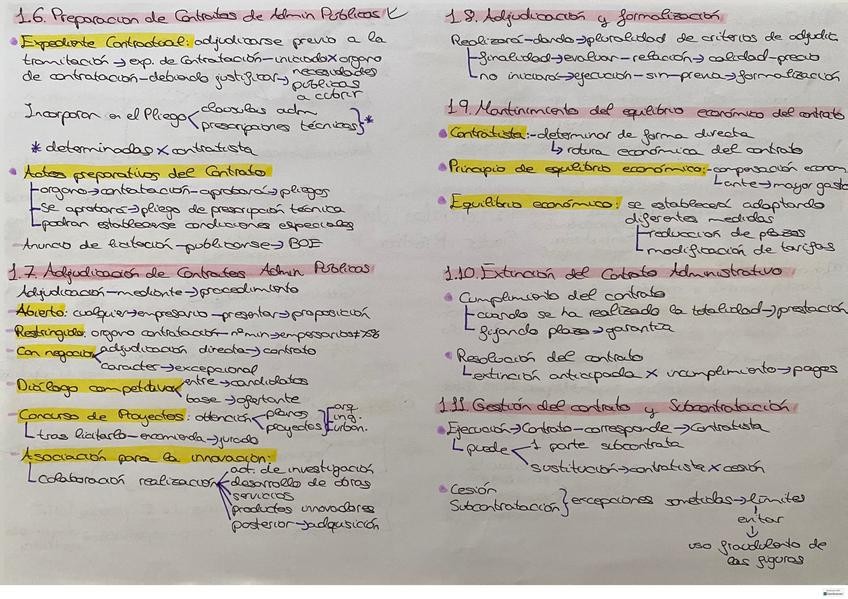 1.6. Preparacion de Contratos de Admin Públicas
Expediente Contractual: adjudicarse previo a la
tramitación → exp. de Contratación - iniciado x organo
de contratación - debiendo justificar → necesidades
públicas
a cubrir
Incorporan en el Pliego
clausulas adm
prescripciones técnicas } *
* determinadas x contratista
Actos preparativos del Contrato
organo → contratación - aprobará → pliegos
Se aprobará → pliego de prescripción técnica
podran establecerse condiciones especiales
Anuncio de licitación - publicarse → BOE
1.7. Adjudicación de Contratos Admin Públicas
Adjudicación - mediante → procedimiento
Abierto: cualquier → empresario - presentar → proposición
Restringido: organo contratación - nº min → empresarios
Con negociac
adjudicación directa → contrato
caracter → excepcional
Diálogo competitivo
entre → candidatos
base → ofertante
Concurso de Proyectos: obtención
planos
proyectos
arq.
ing.
urban.
tras licitarlo - encomienda → jurado
Asociación para la innovación:
Colaboración realización
act. de investigación
desarrollo de obras
servicios
productos innovadores
posterior → adquisición
1.8. Adjudicación y formalización
Realizará - dando → pluralidad de criterios de adjudic
finalidad → evaluar - relación → calidad - precio
no iniciará → ejecución - sin - previa → formalización
1.9. Mantinimiento del equilibrio económico del contrato
Contratista: - determinar de forma directa
↳ rotura económica del contrato
Principio de equilibrio económico: - compensación econom
ante → mayor gasto
Equilibrio económico: se establecerá adaptando
diferentes medidas
reducción de plazas
modificación de tarifas
1.10. Extinción del Contrato Administrativo
Cumplimiento del contrato
cuando se ha realizado la totalidad → prestación
fijando plazo → garantía
Resolución del contrato
extinción anticipada x incumplimiento → pagos
1.11. Gestión del contrato y Subcontratación
Ejecución → Contrato - corresponde → Contratista
puede
1 parte subcontrata
sustitución → contratista x cesión
Cesión
Subcontratación } excepciones sometidas → límites
evitar
uso fraudulento de
las figuras